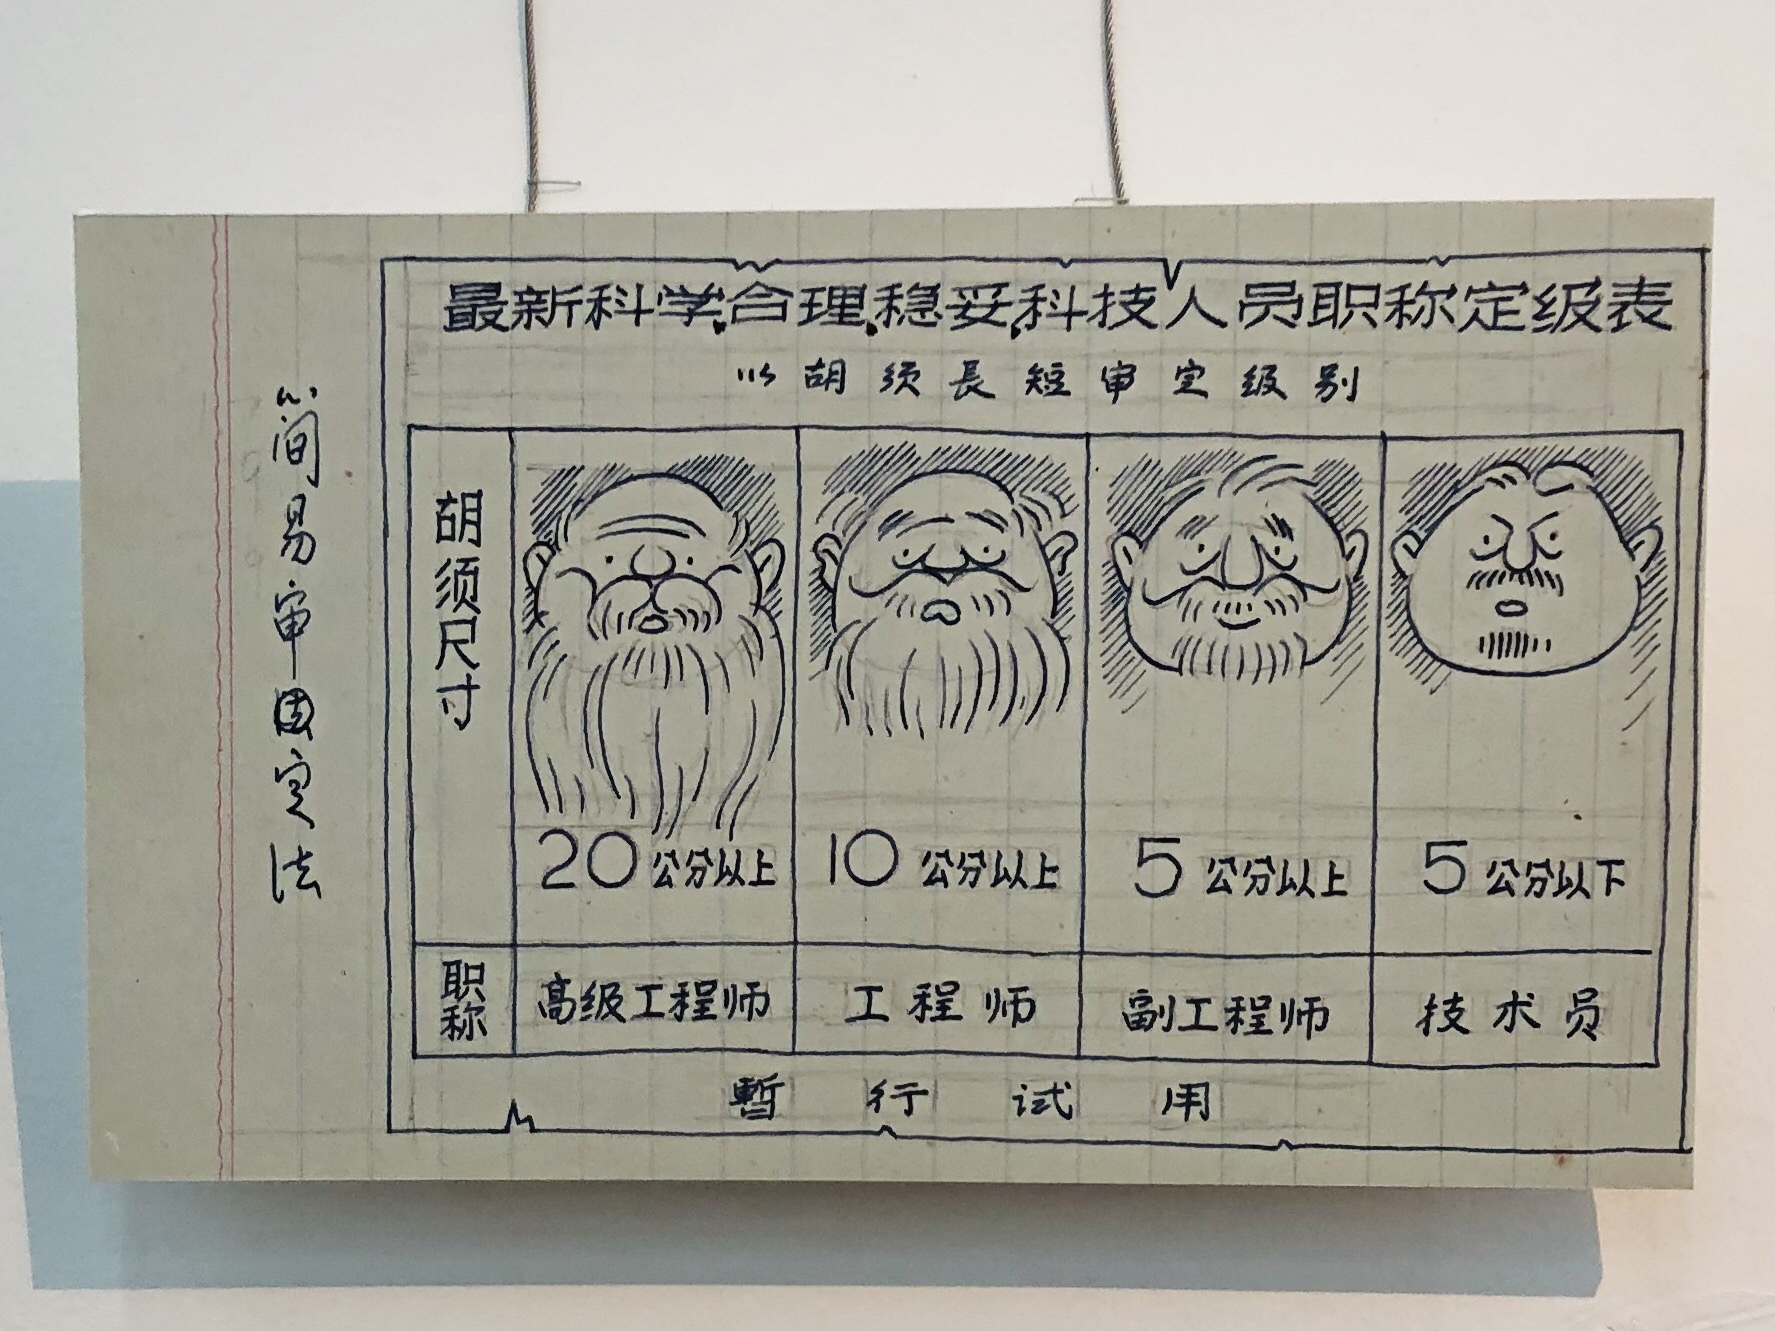 最新科学、合理、稳妥、科技人员职称定级表
以胡须長短审定级别
胡须尺寸
20公分以上
10公分以上
5公分以上
5公分以下
职称
高级工程师
工程师
副工程师
技术员
暫行试用
简易审定法